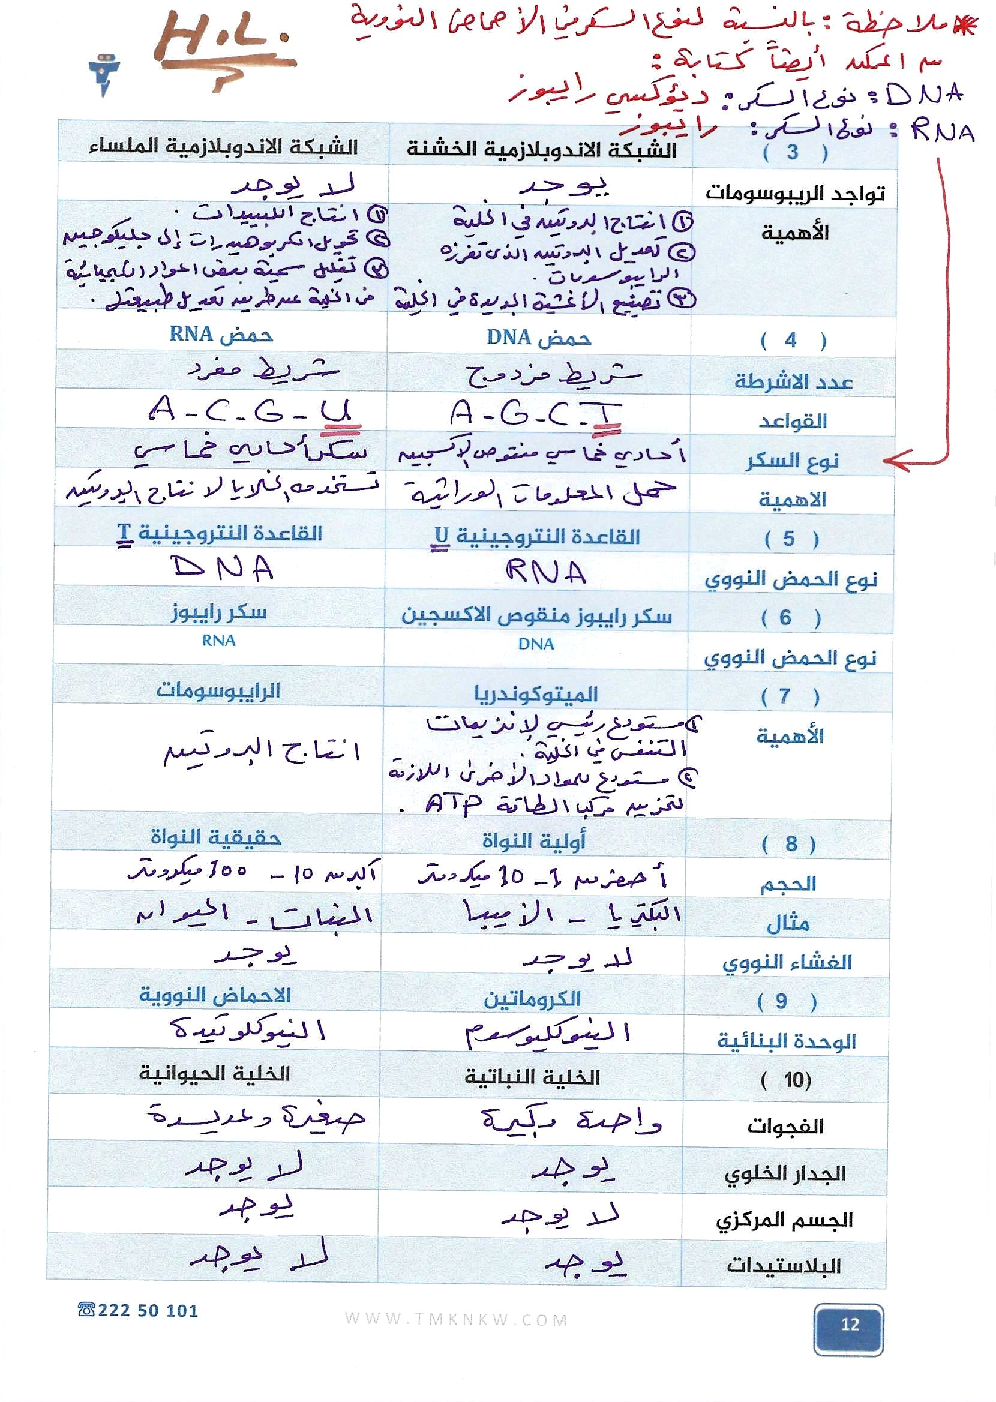 * ملاحظة : بالنسبة لنوع السكر في الأحماض النووية
من الممكن أيضاً كتابة :
DNA : نوع السكر : ديؤكسي رايبوز
RNA : نوع السكر : رايبوز
H.L.
( 3 ) الشبكة الاندوبلازمية الخشنة الشبكة الاندوبلازمية الملساء
تواجد الريبوسومات يوجد لا يوجد
الأهمية
① انتاج البروتين في الخلية
② تعديل البروتين الذي تفرزه
الرايبوسومات .
③ تصنيع الأغشية الجديدة في الخلية
① انتاج الليبيدات .
② تحويل الكربوهيدرات إلى جليكوجين
③ تقليل سمية بعض المواد الكيميائية
في الخلية عن طريق تعديل طبيعتها .
( 4 ) حمض DNA حمض RNA
عدد الاشرطة شريط مزدوج شريط مفرد
القواعد A - G - C - T A - C - G - U
نوع السكر أحادي خماسي منقوص الأكسجين سكر أحادي خماسي
الاهمية حمل المعلومات الوراثية تستخدمه الخلايا لانتاج البروتين
( 5 ) القاعدة النتروجينية U القاعدة النتروجينية T
نوع الحمض النووي RNA DNA
( 6 ) سكر رايبوز منقوص الاكسجين سكر رايبوز
نوع الحمض النووي DNA RNA
( 7 ) الميتوكوندريا الرايبوسومات
الأهمية
مستودع رئيسي لإنزيمات
التنفس في الخلية .
② مستودع للمواد الأخرى اللازمة
لتخزين مركب الطاقة ATP .
انتاج البروتين
( 8 ) أولية النواة حقيقية النواة
الحجم أصغر من 1 - 10 ميكرومتر أكبر من 10 - 100 ميكرومتر
مثال البكتريا - الأميبا النبات - الحيوان
الغشاء النووي لا يوجد يوجد
( 9 ) الكروماتين الاحماض النووية
الوحدة البنائية النيوكليوسوم النيوكلوتيدة
( 10) الخلية النباتية الخلية الحيوانية
الفجوات واحدة وكبيرة صغيرة وعديدة
الجدار الخلوي يوجد لا يوجد
الجسم المركزي لا يوجد يوجد
البلاستيدات يوجد لا يوجد
☎222 50 101
WWW.TMKNKW.COM
12